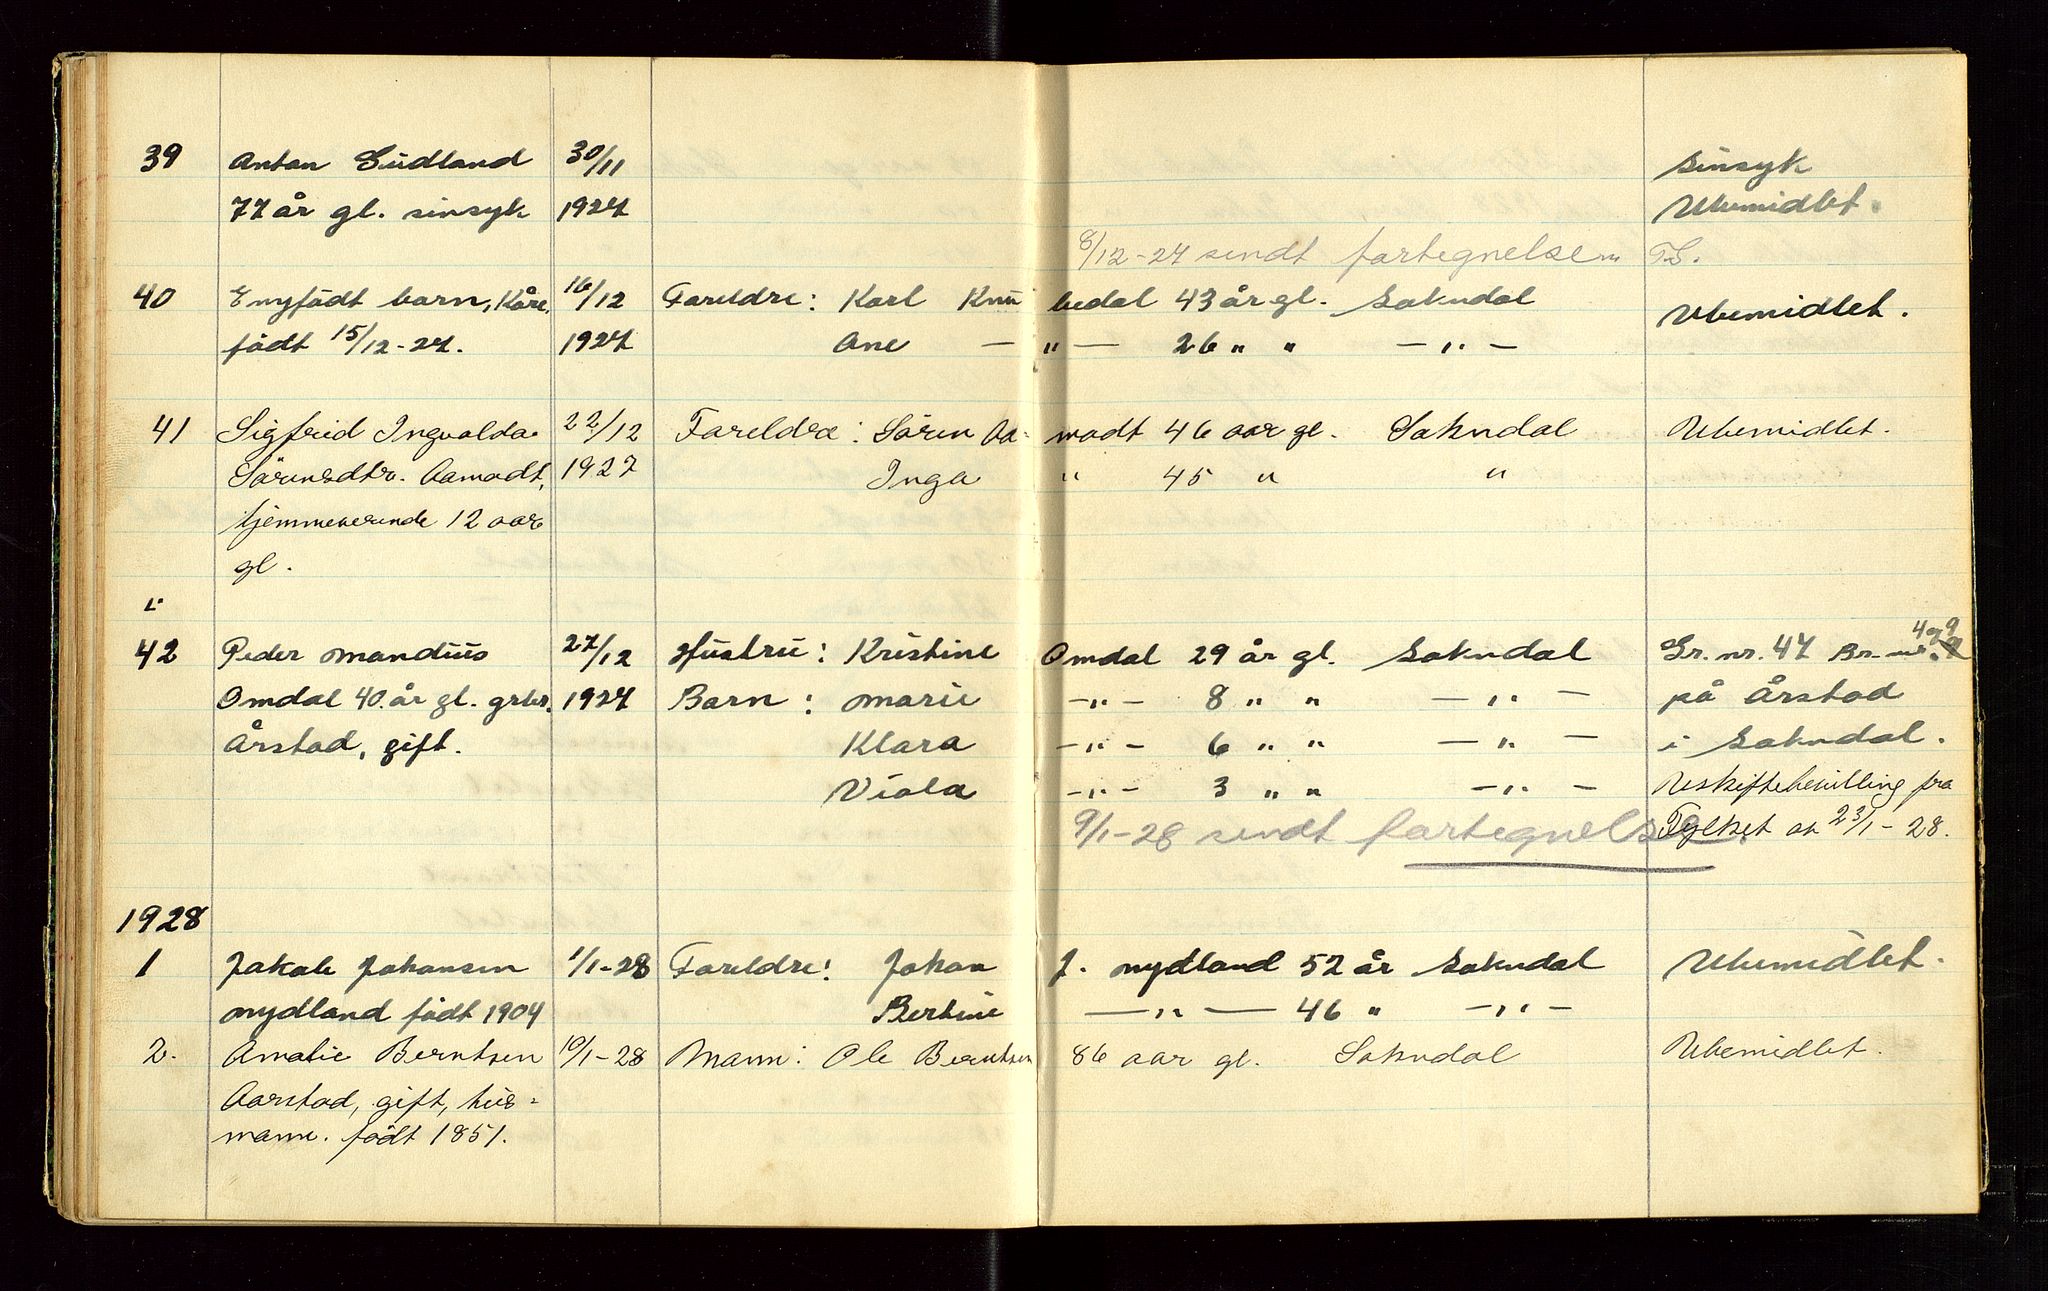 39 Anton Sudland 30/11 sinsyk
77 år gl. sinsyk 1927 Ubemidlet.
8/12-27 sendt fortegnelsen T.S.
40 E nyfödt barn, Kåre, 16/12 Foreldre: Karl Knubedal 43 år gl. Sokndal Ubemidlet.
födt 15/12-27. 1927 Ane — „ — 26 „ „ — „ —
41 Sigfrid Ingvalda 22/12 Foreldre: Sören Aamodt 46 aar gl. Sokndal Ubemidlet.
Sörensdtr. Aamodt, 1927 Inga „ 45 „ „
hjemmeverende 12 aar
gl.
42 Peder Mandius 27/12 Hustru: Kristine Omdal 29 år gl. Sokndal Gr. nr. 47 Br. nr. 4 og 9
Omdal 40. år gl. grbr. 1927 Barn: Marie — „ — 8 „ „ — „ — på Årstad
Årstad, gift. Klara — „ — 6 „ „ — „ — i Sokndal.
Viola — „ — 3 „ „ — „ — Uskiftebevilling fra
9/1-28 sendt fortegnelse. Fylket av 23/1-28.
1928
1 Jakob Johansen 1/1-28 Foreldre: Johan J. Mydland 52 år Sokndal Ubemidlet.
Mydland födt 1904 Bertine — „ — 46 „ — „ —
2. Amalie Berntsen 10/1-28 Mann: Ole Berntsen 86 aar gl. Sokndal Ubemidlet.
Aarstad, gift, hus-
mann. födt 1851.